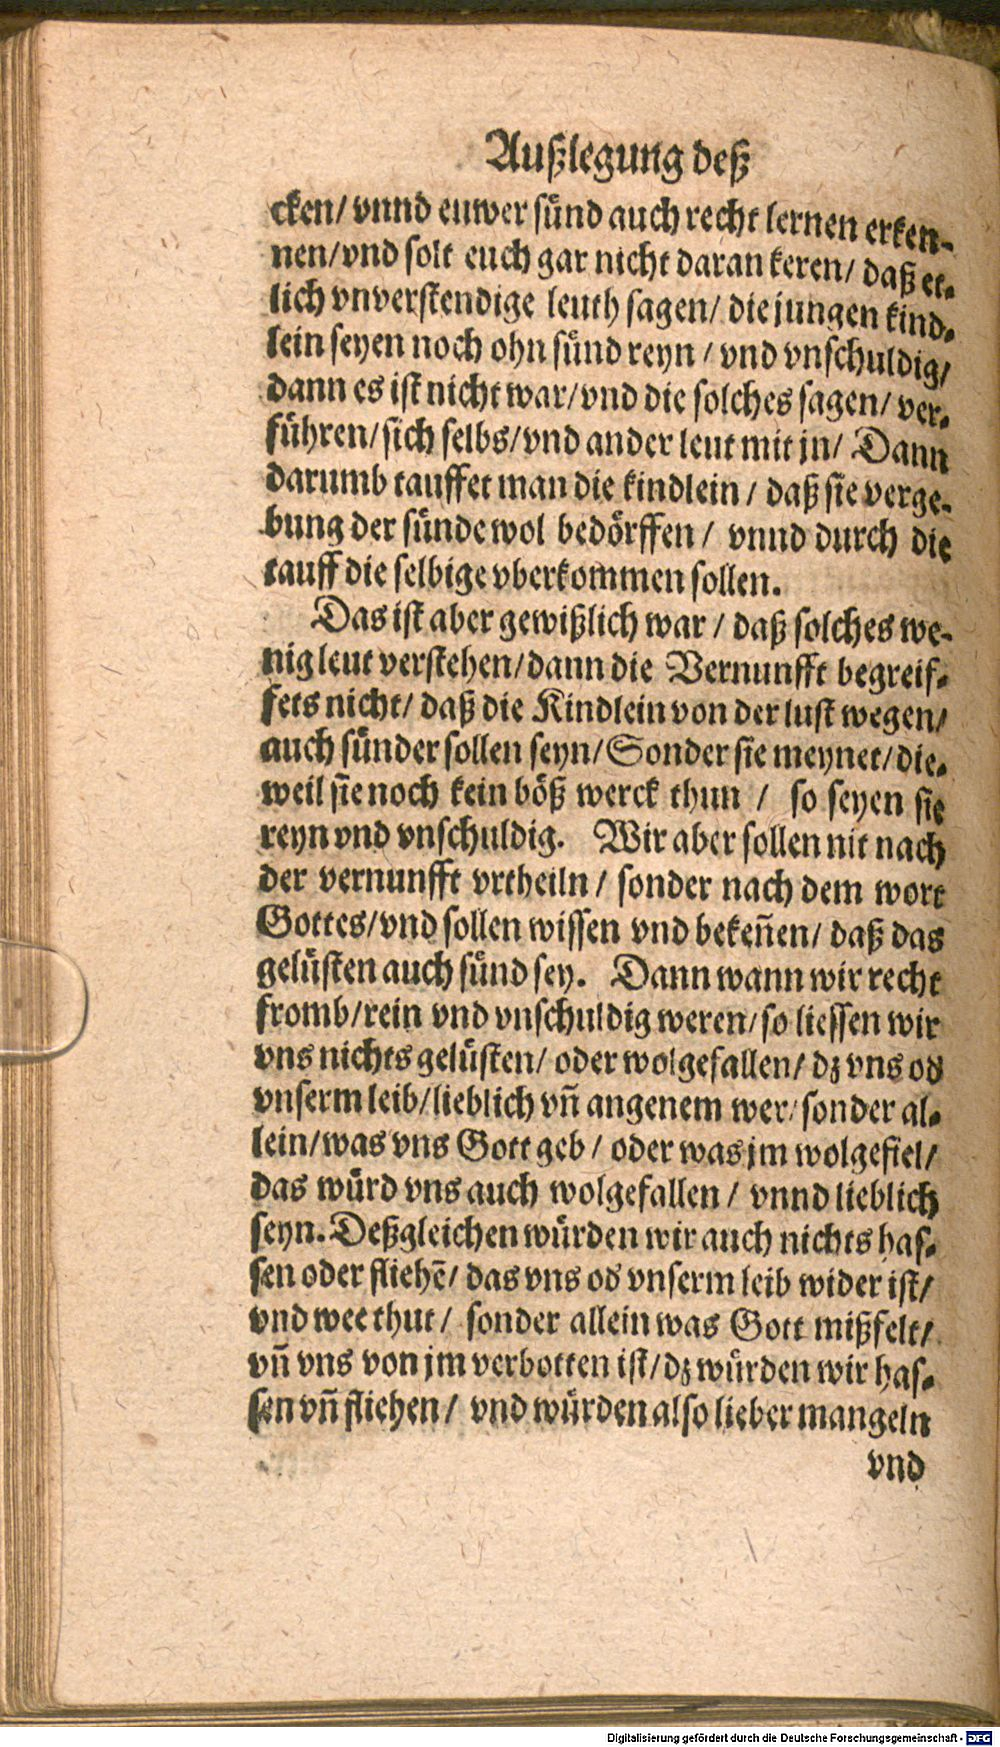 Außlegung deß
cken/ vnnd euwer sünd auch recht lernen erken-
nen/ vnd solt euch gar nicht daran keren/ daß et-
lich vnverstendige leuth sagen/ die jungen kind-
lein seyen noch ohn sünd reyn / vnd vnschuldig/
dann es ist nicht war/ vnd die solches sagen/ ver-
führen/ sich selbs/ vnd ander leut mit jn/ Dann
darumb tauffet man die kindlein / daß sie verge-
bung der sünde wol bedörffen / vnnd durch die
tauff die selbige vberkommen sollen.
Das ist aber gewißlich war / daß solches we-
nig leut verstehen/ dann die Vernunfft begreif-
fets nicht/ daß die Kindlein von der lust wegen/
auch sünder sollen seyn/ Sonder sie meynet/ die-
weil sie noch kein böß werck thun / so seyen sie
reyn vnd vnschuldig. Wir aber sollen nit nach
der vernunfft vrtheiln / sonder nach dem wort
Gottes/ vnd sollen wissen vnd bekeñen/ daß das
gelüsten auch sünd sey. Dann wann wir recht
fromb/ rein vnd vnschuldig weren/ so liessen wir
vns nichts gelüsten/ oder wolgefallen/ dz vns od
vnserm leib/ lieblich vñ angenem wer/ sonder al-
lein/ was vns Gott geb / oder was jm wolgefiel/
das würd vns auch wolgefallen / vnnd lieblich
seyn. Deßgleichen würden wir auch nichts has-
sen oder fliehẽ/ das vns od vnserm leib wider ist/
vnd wee thut / sonder allein was Gott mißfelt/
vñ vns von jm verbotten ist/ dz würden wir has-
sen vñ fliehen / vnd würden also lieber mangeln
vnd
Digitalisierung gefördert durch die Deutsche Forschungsgemeinschaft - DFG